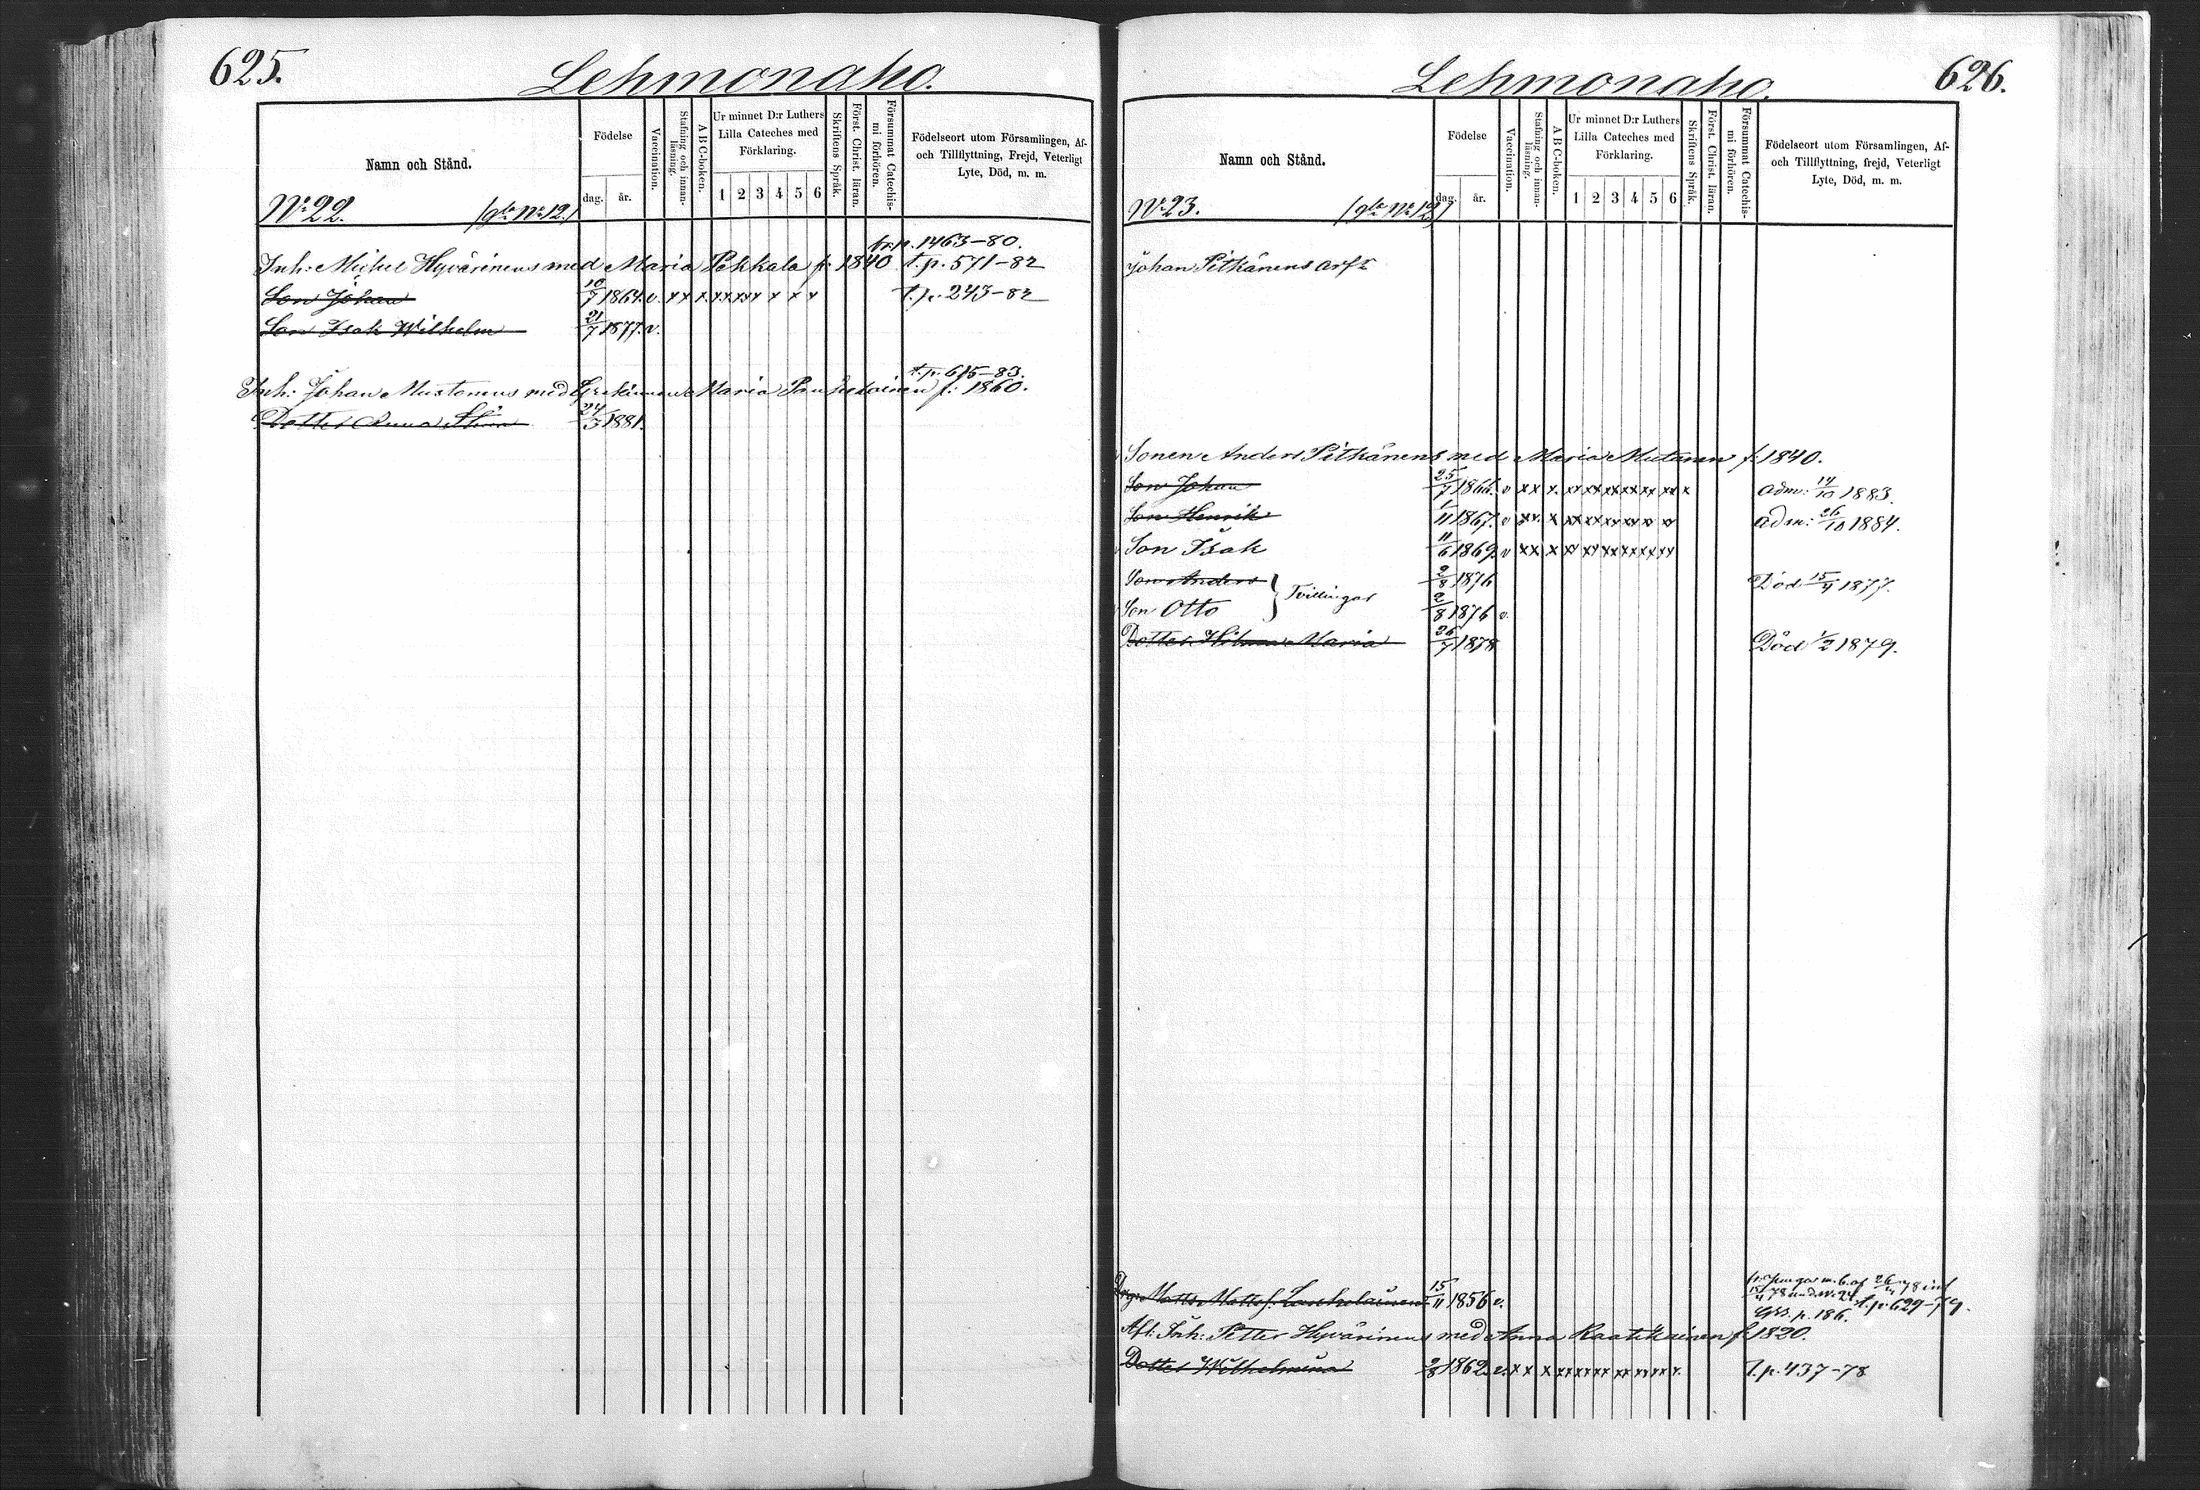 625.
Lehmonaho.
Namn och Stånd.
Födelse
dag.
år.
Vaccination.
Stafning och innan-
läsning.
A B C-boken.
Ur minnet D:r Luthers
Lilla Cateches med
Förklaring.
1 2 3 4 5 6
Skriftens Språk.
Först. Christ. läran.
Försummat Catechis-
mi förhören.
Födelseort utom Församlingen, Af-
och Tillflyttning, Frejd, Veterligt
Lyte, Död, m. m.
No 22. (gla No 12.)
tr. p. 1463-80.
Inh: Michel Hyvärinens med Maria Pekkala f. 1840 t. p. 571-82
Son Johan 10/7 1864. v. x x x x x x x x x x t. p. 243-82
Son Isak Wilhelm 21/7 1877. v.
t. p. 615-83.
Inh: Johan Mustonens med Maria f: 1860.
Dotter Anna Stina 24/3 1881.
626.
Lehmonaho.
Namn och Stånd.
Födelse
dag.
år.
Vaccination.
Stafning och innan-
läsning.
A B C-boken.
Ur minnet D:r Luthers
Lilla Cateches med
Förklaring.
1 2 3 4 5 6
Skriftens Språk.
Först. Christ. läran.
Försummat Catechis-
mi förhören.
Födelseort utom Församlingen, Af-
och Tillflyttning, frejd, Veterligt
Lyte, Död, m. m.
No 23. (gla No 12)
Johan Pitkänens arf:
Sonen Anders Pitkänens med Maria Mutanen f: 1840.
Son Johan 25/7 1866. v xx x. xx xx xx xx xx xx x adm: 14/10 1883.
Son Henrik 1/11 1867. v xx. x xx xx xx xx xx xx adm: 26/10 1884.
Son Isak 11/6 1869. v xx x xx xx xx xx xx xx
Son Anders } Tvillingar 2/8 1876 Död 15/4 1877.
Son Otto 2/8 1876 v.
Dotter Hilma Maria 26/7 1878 Död 1/2 1879.
Drg: Matts Mattsf. 15/11 1856 v.
t. p. 629-79.
p. 186.
Aft: Inh: Petter Hyvärinens med Anna Raatikainen f. 1820.
Dotter Wilhelmina 2/8 1862. v. x x x xx xx xx xx xx x. T. p. 437-78